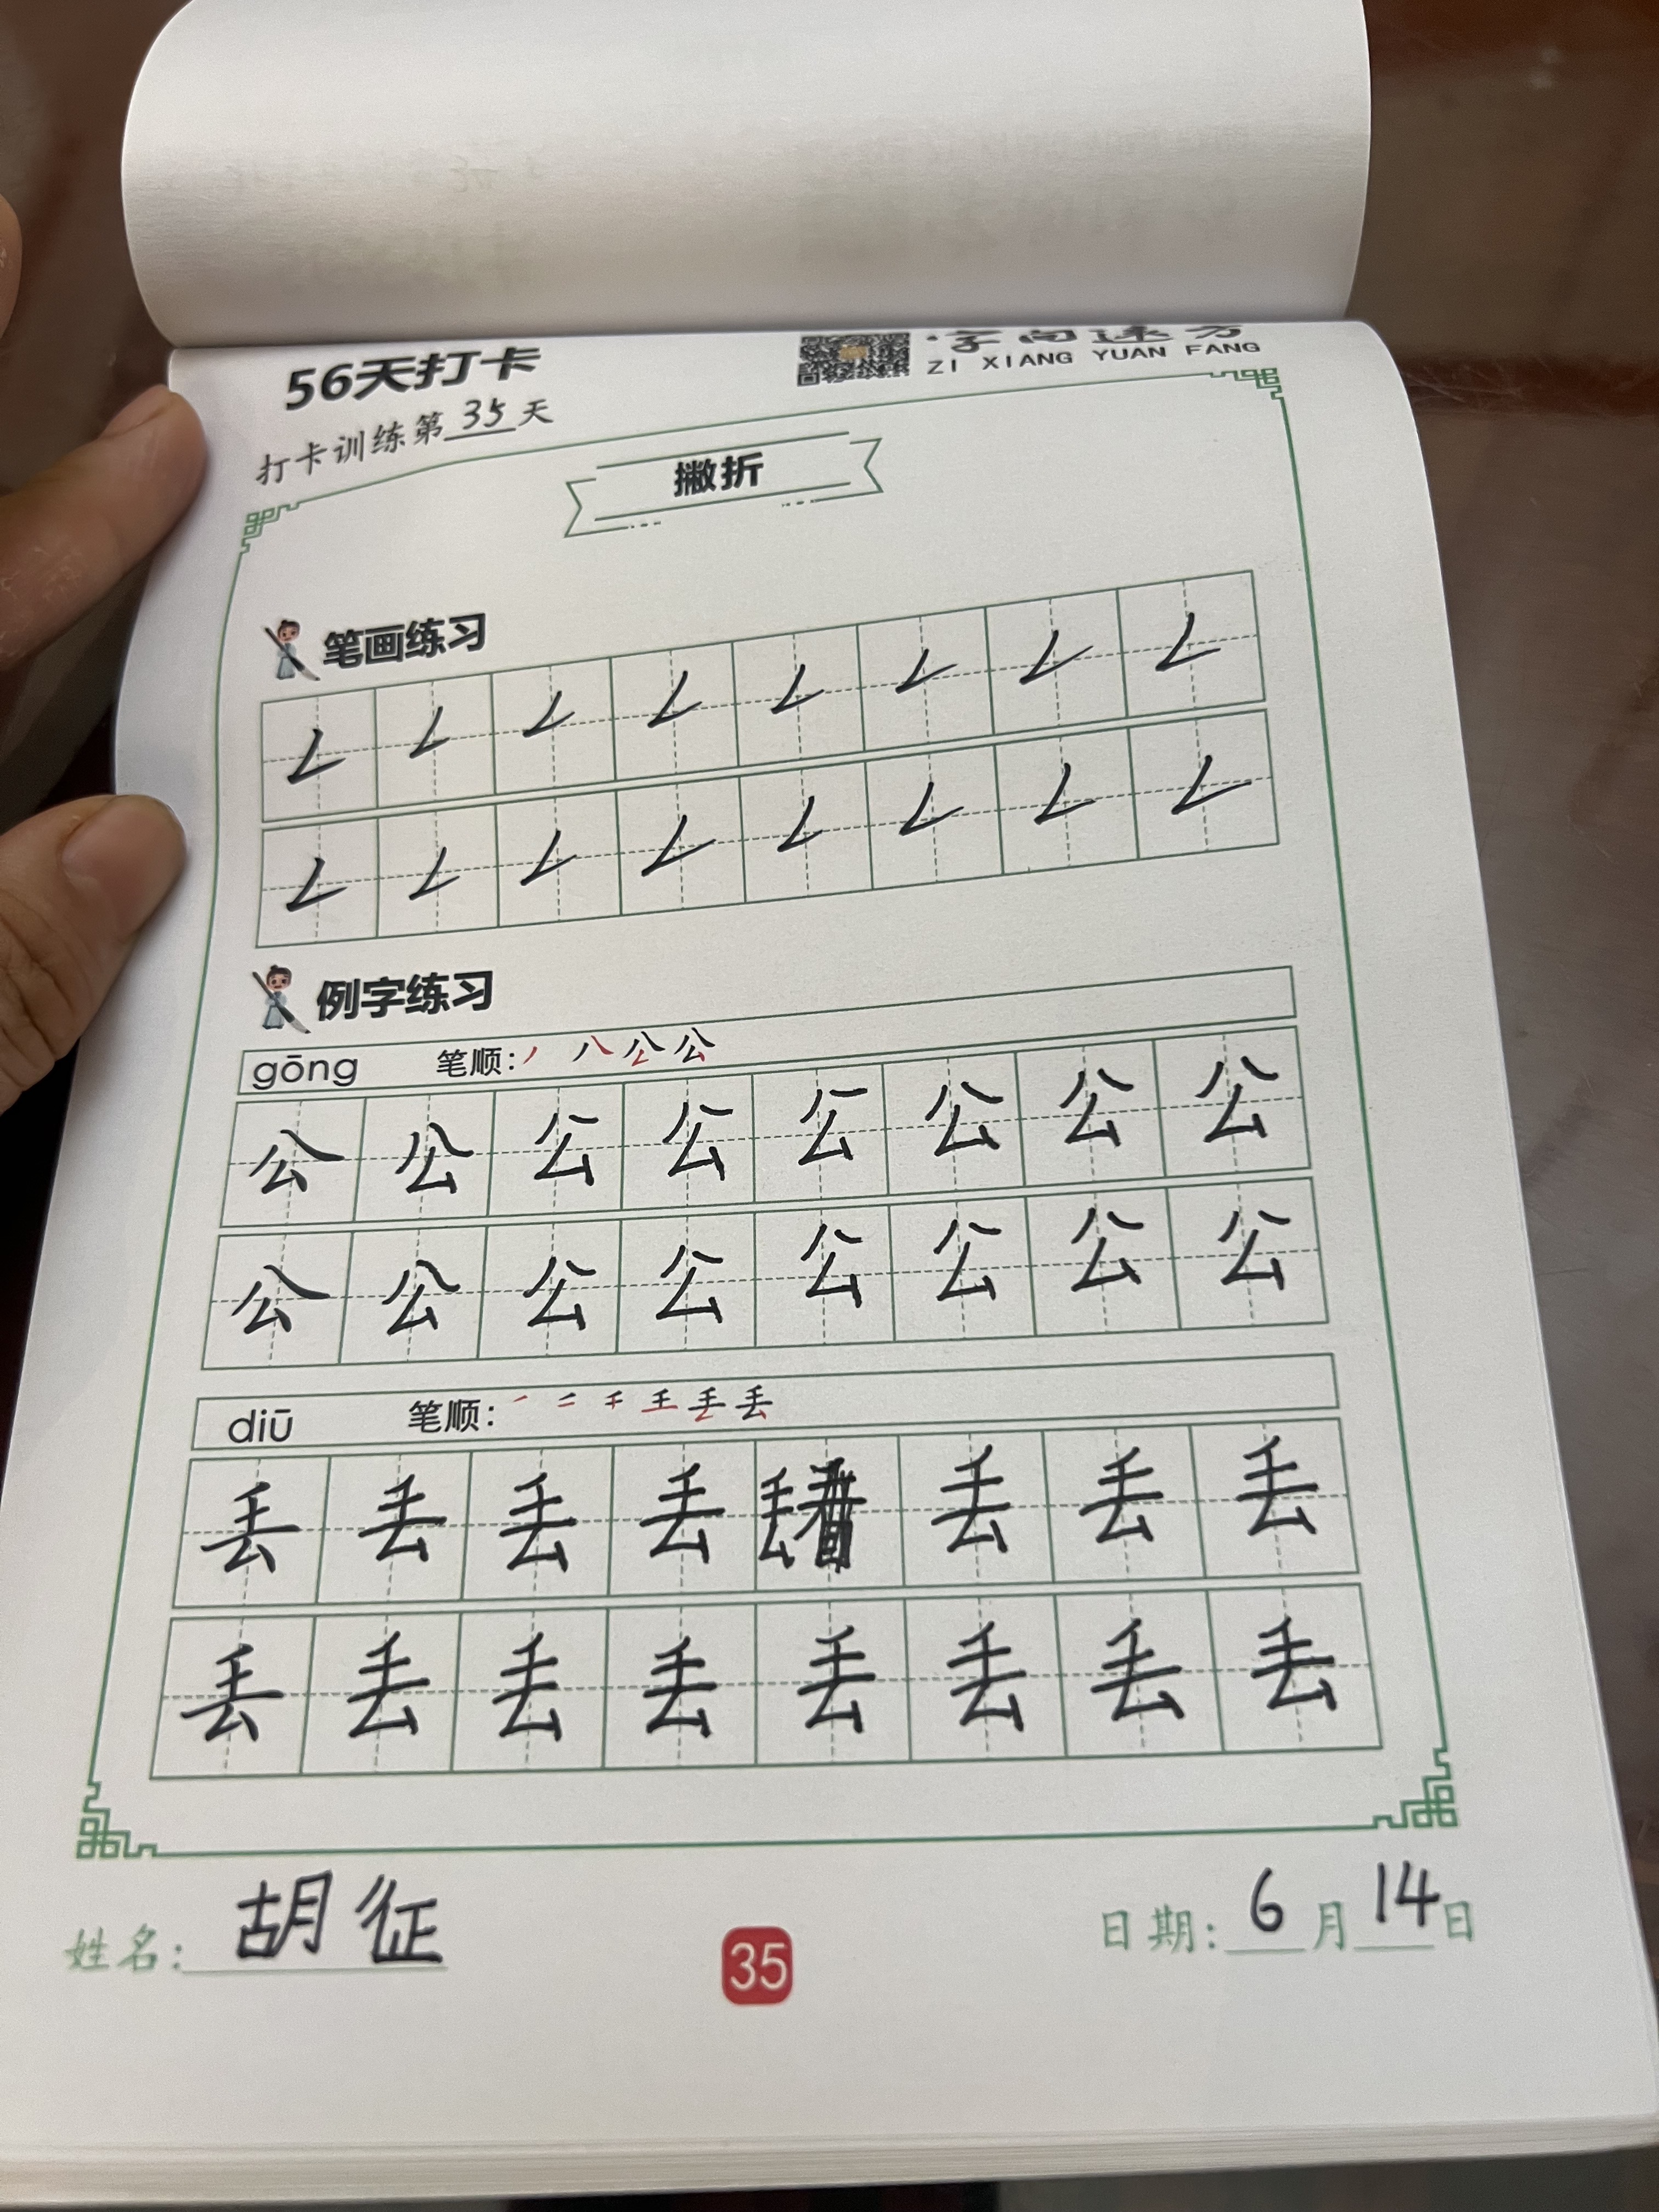 56天打卡
字向远方
ZI XIANG YUAN FANG
打卡训练第35天
撇折
笔画练习
例字练习
gōng 笔顺: 公
公 公 公 公 公 公 公 公
公 公 公 公 公 公 公 公
diū 笔顺: 丢 丢
丢 丢 丢 丢 丢 丢 丢 丢
丢 丢 丢 丢 丢 丢 丢 丢
姓名: 胡征
35
日期: 6月14日